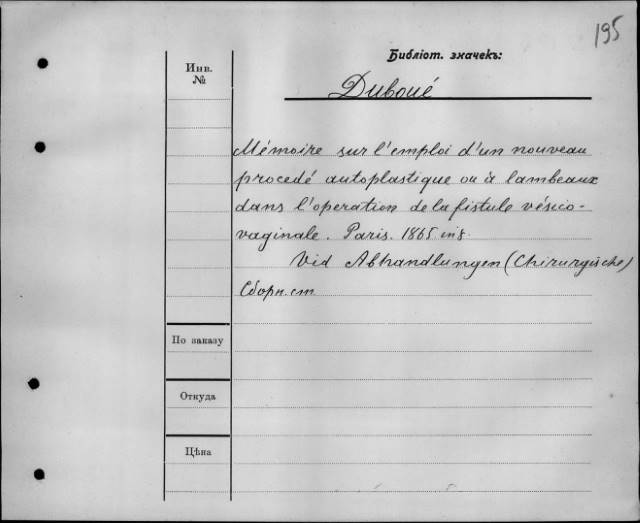 195
Библiот. значекъ:
Инв.
№
Duboué
Mémoire sur l'emploi d'un nouveau
procedé autoplastique ou à lambeaux
dans l'operation de la fistule vésico-
vaginale. Paris. 1865 in 8.
Vid Abhandlungen (Chirurgische)
Сборн. ст.
По заказу
Откуда
Цѣна